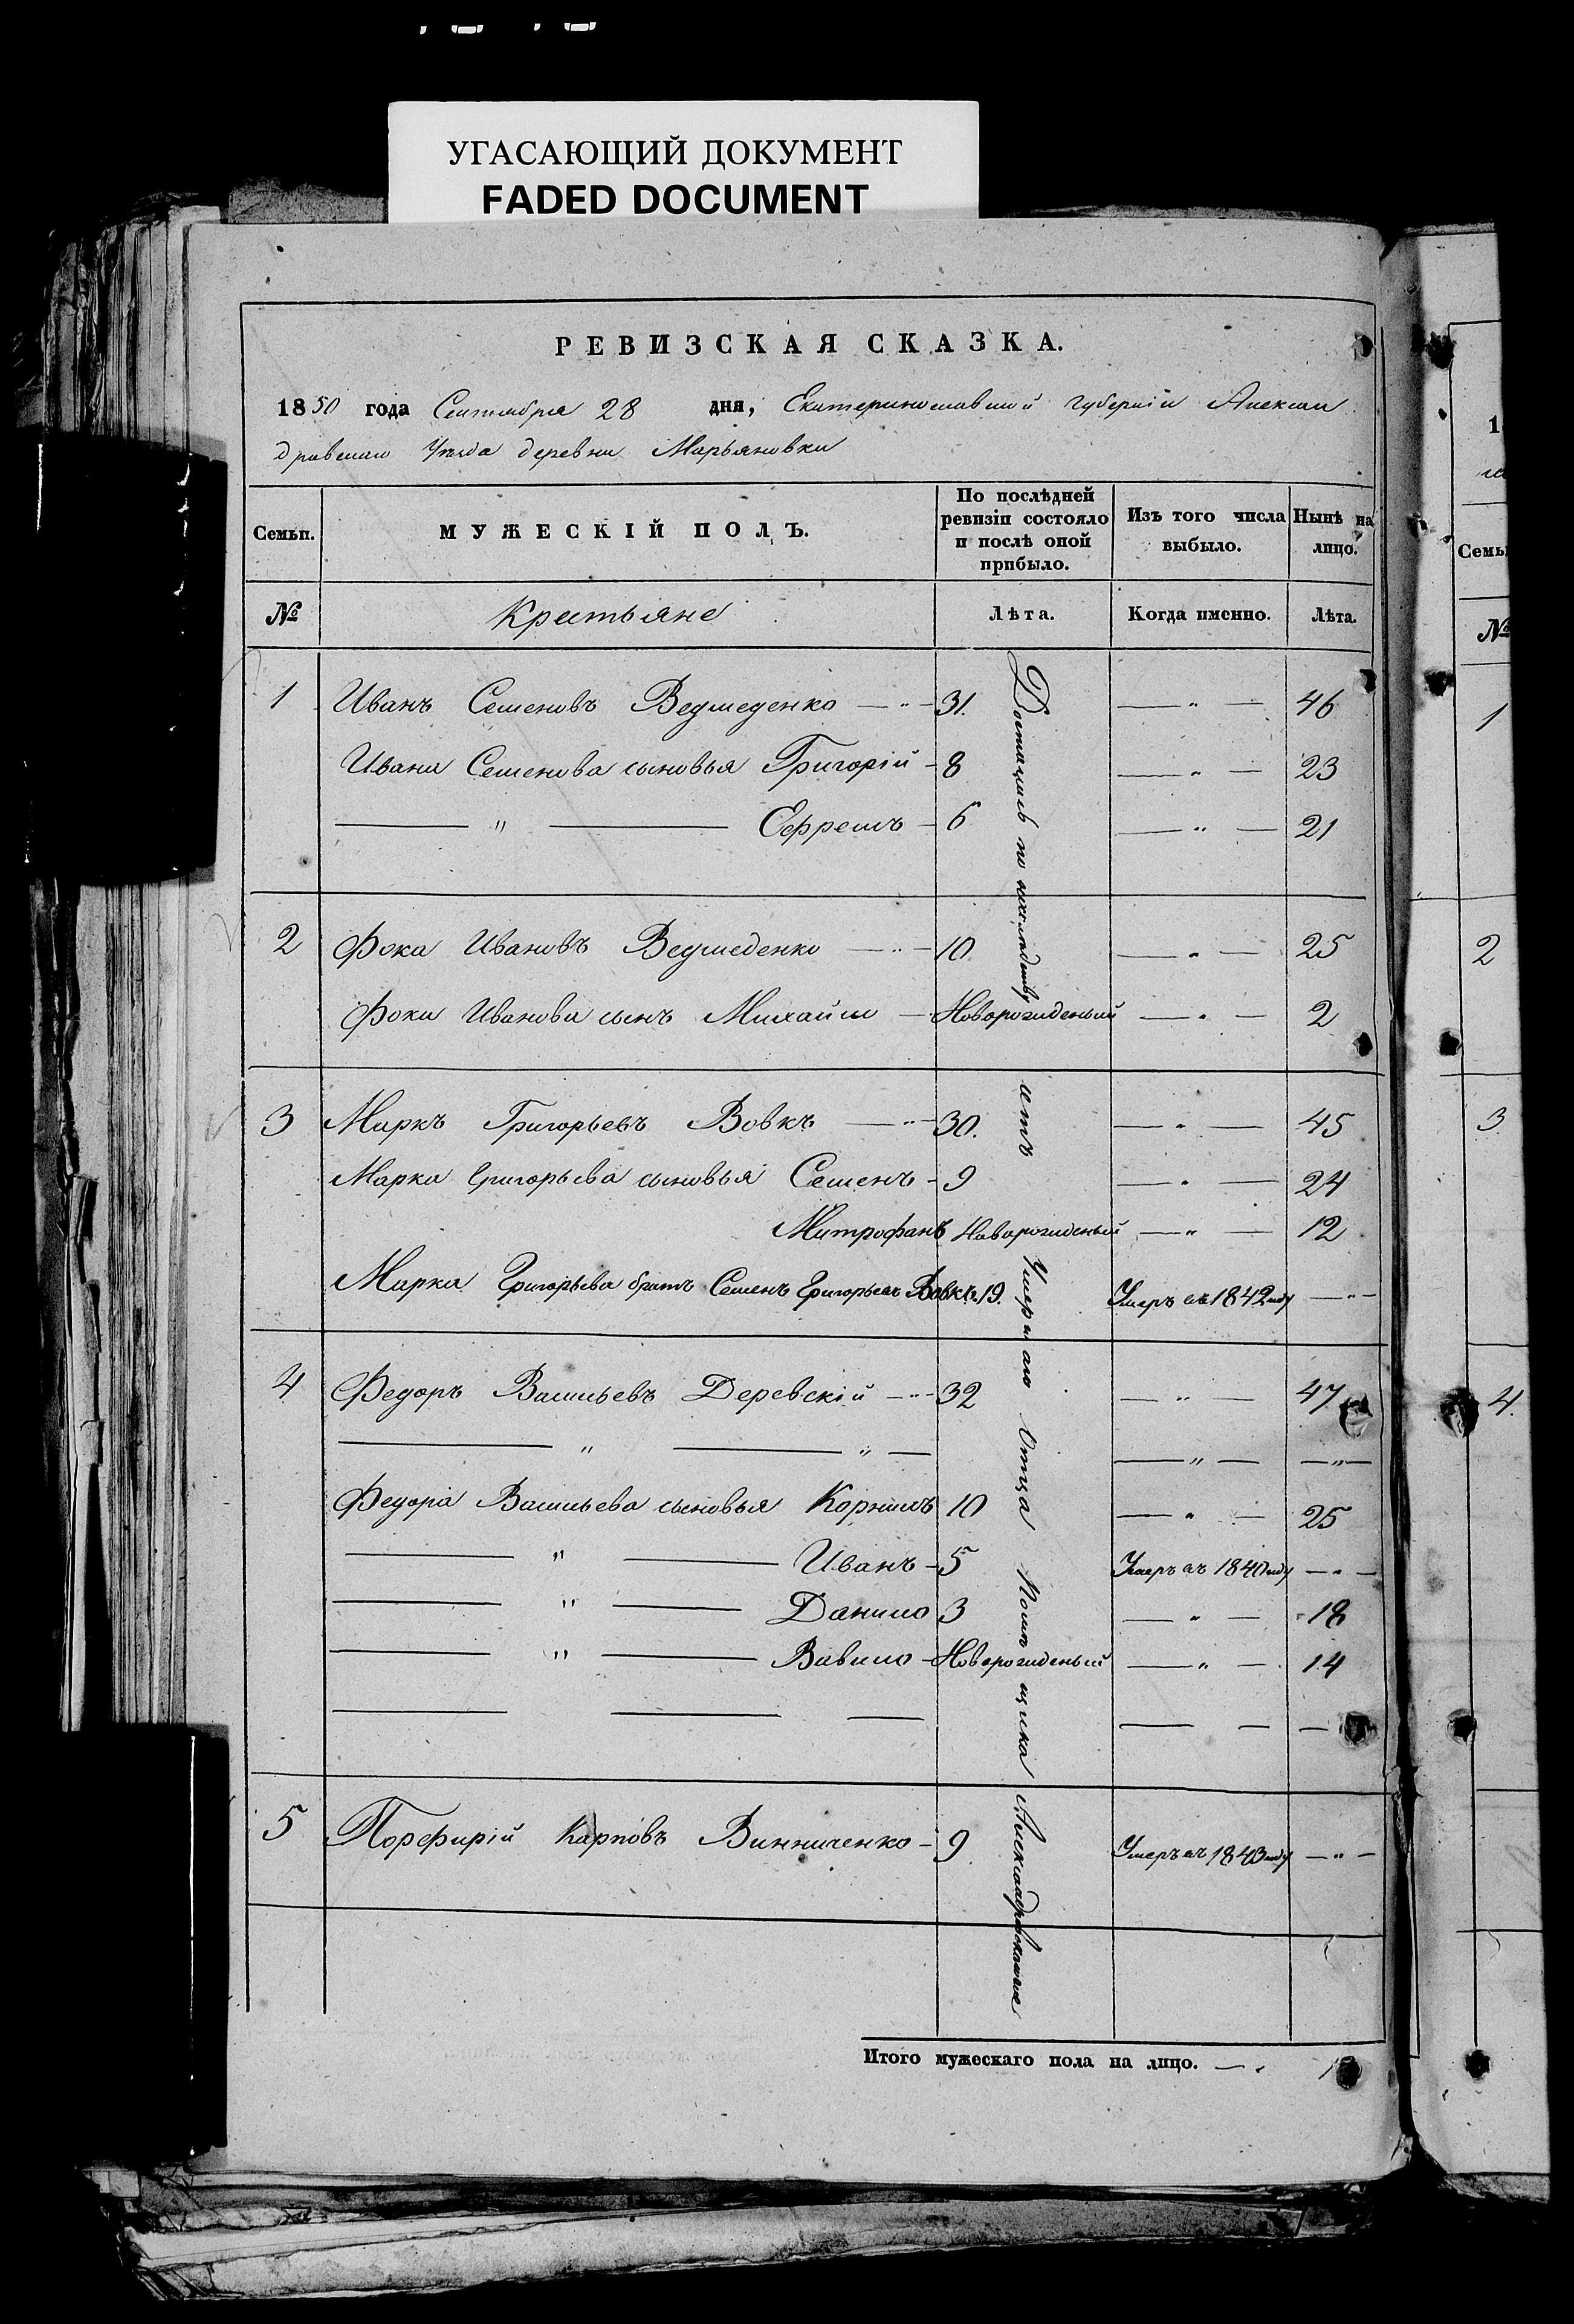 УГАСАЮЩИЙ ДОКУМЕНТ
FADED DOCUMENT
РЕВИЗСКАЯ СКАЗКА.
1850 года Сентября 28 дня, Екатеринославской губерніи Алексан
дровскаго Уѣзда деревни Марьяновки
Семьи. МУЖЕСКІЙ ПОЛЪ. По послѣдней ревизіи состояло и послѣ оной прибыло. Изъ того числа выбыло. Нынѣ на лицо.
№ Крестьяне Лѣта. Когда именно. Лѣта.
1 Иванъ Семеновъ Ведмеденко — „ — 31. — „ — 46
Ивана Семенова сыновья Григорій — 8 — „ — 23
— „ — Ефремъ — 6 — „ — 21
2 Фока Ивановъ Ведмеденко — „ — 10 — „ — 25
Фоки Иванова сынъ Михайло — Новорожденый — „ — 2
3 Маркъ Григорьевъ Вовкъ — „ — 30. — „ — 45
Марка Григорьева сыновья Семенъ — 9 — „ — 24
Митрофанъ Новорожденый — „ — 12
Марка Григорьева братъ Семенъ Григорьевъ Вовкъ. 19. Умеръ въ 1842 году — „ —
4 Федоръ Васильевъ Деревскій — „ — 32 — „ — 47
— „ — „ — — „ — — „ —
Федора Васильева сыновья Корнилъ 10 — „ — 25
— „ — Иванъ — 5 Умеръ въ 1840 году — „ —
— „ — Данило 3 — „ — 18
— „ — Вавило — Новорожденый — „ — 14
5 Порфирій Карповъ Винниченко — 9 Умеръ въ 1843 году — „ —
Доставшіеся по наследству отъ Умершаго Отца Помѣщика
Итого мужескаго пола на лицо. — „
1
Семьи
№
1
2
3
4.